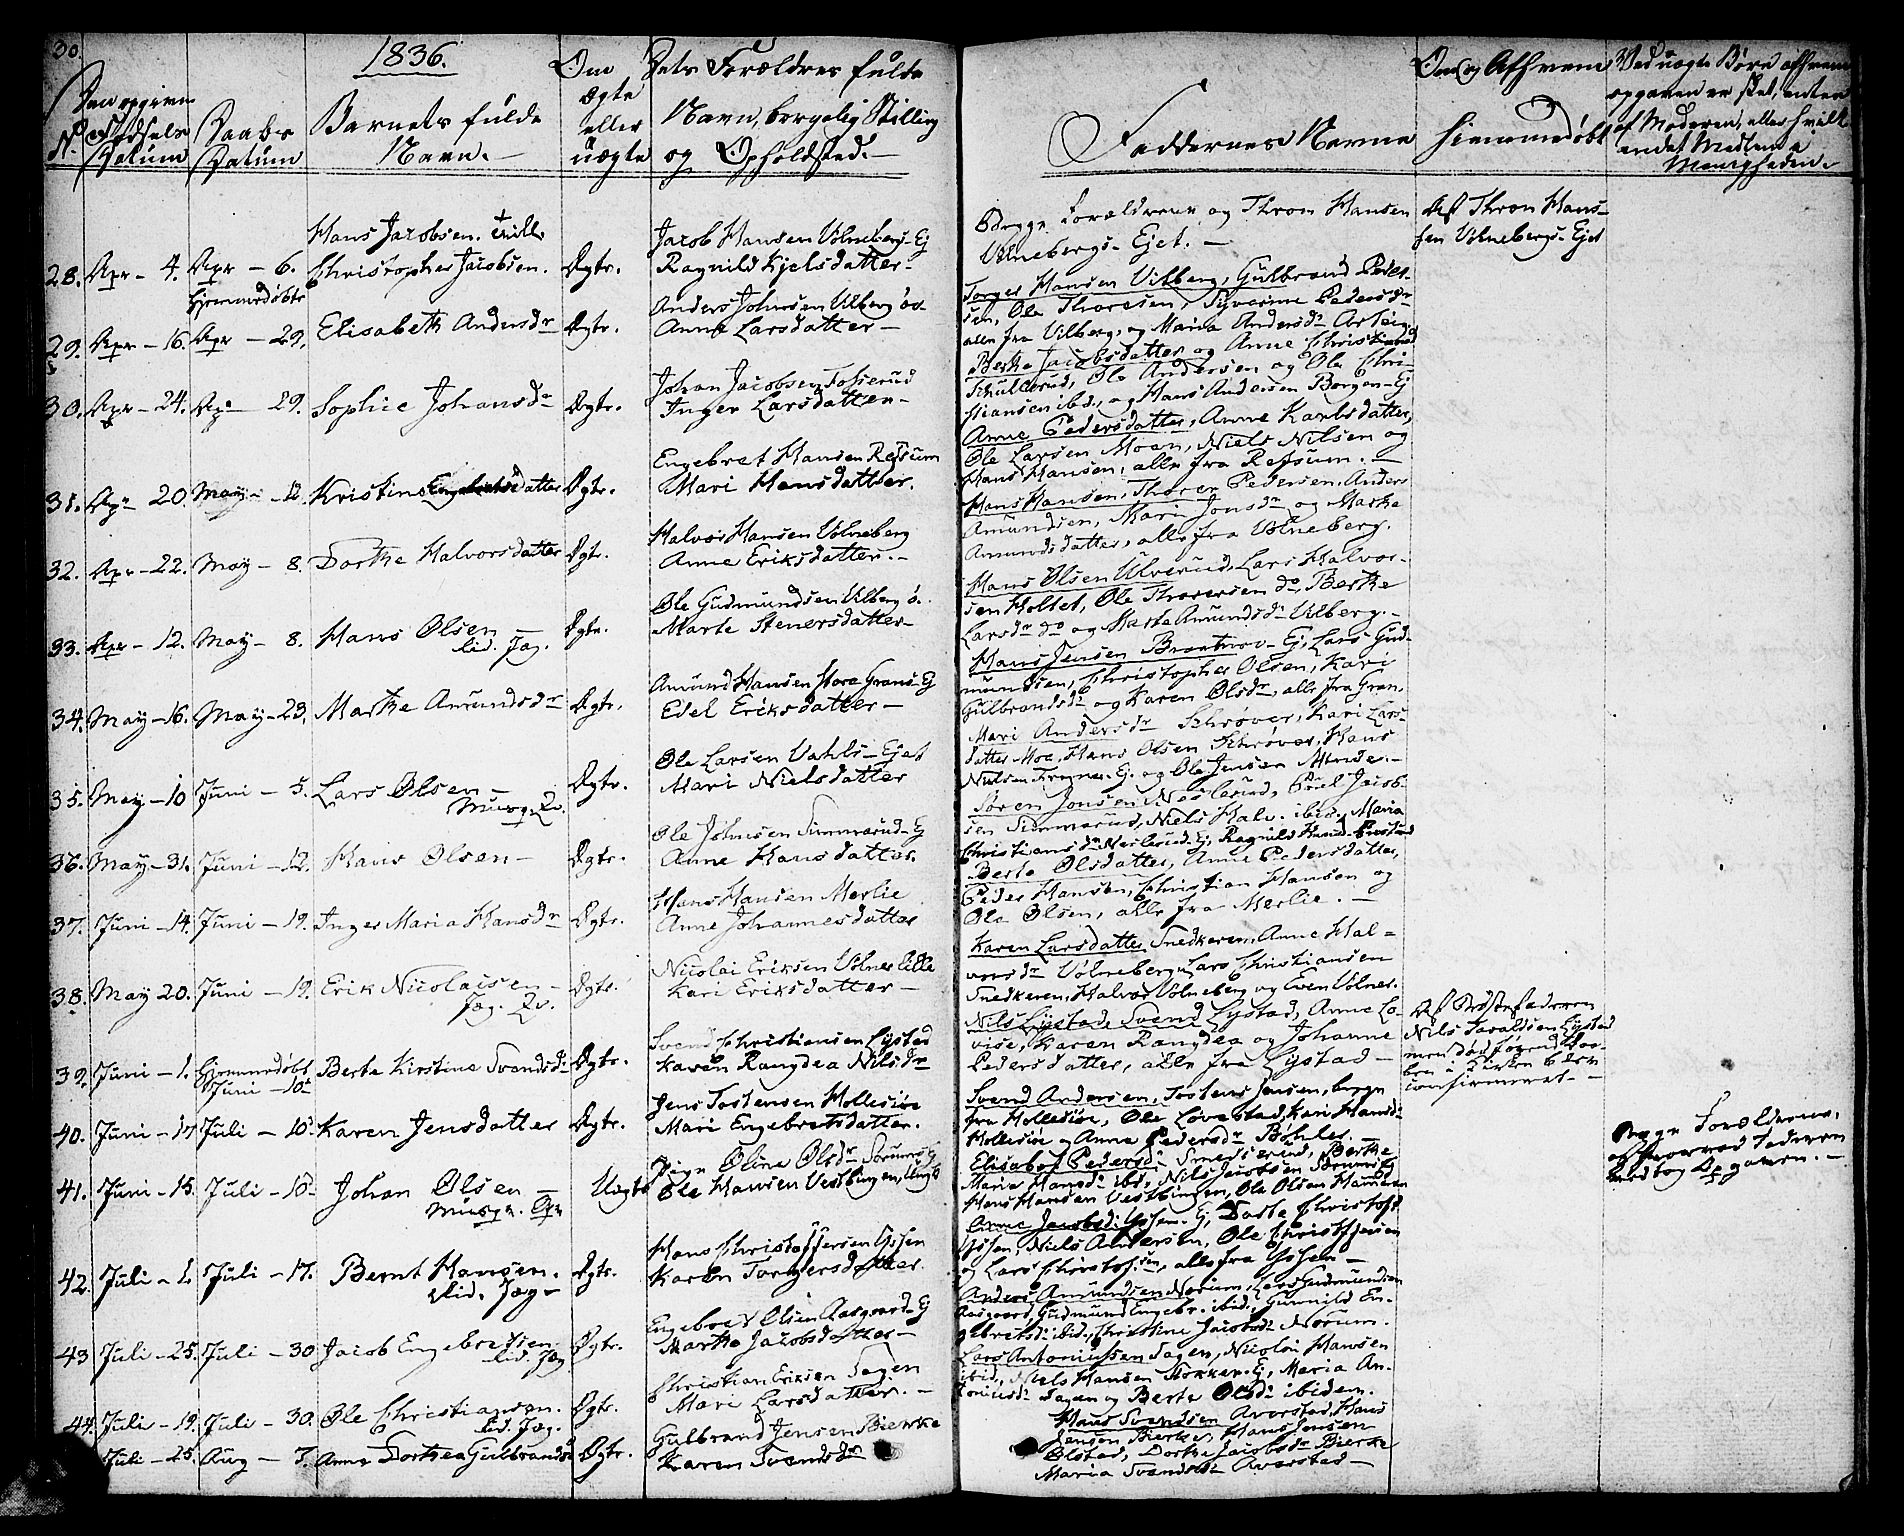 30.
1836.
Den opgivne
N. Fødsels
Datum
Daabs
Datum
Barnets fulde
Navn. -
Om
ægte
eller
uægte
Dets Forældres fulde
Navn, borgelig Stilling
og Opholdsted. -
Faddernes Navne
Om og Af hvem
hiemmedøbt
Ved uægte Børn af hvem
opgaven er skeet, enten
af Moderen, eller hvilk
andet Medlem i
Menigheden.
Hans Jacobsen.
28. Apr - 4. Apr - 6. Christopher Jacobsen. Ægte.
Hjemmedøbte
Jacob Hansen Volnebergs-Ej
Ragnild Kjelsdatter -
Begge Forældrene og Thron Hansen
Volnebergs-Ejet. -
Af Thron Han-
sen Volnebergs-Ejet
29. Apr - 16. Apr - 29. Elisabeth Andersdr Ægte.
Anders Johnsen Vilberg
Anne Larsdatter -
Torger Hansen Vilberg, Gulbrand Peder-
sen, Ole Thoresen, Pedersdr
alle fra Vilberg, og Maria Andersdr
30. Apr - 24. Apr 29. Sophie Johansdr Ægte.
Johan Jacobsen
Inger Larsdatter -
Berthe Jacobsdatter og Anne
Ole Andersen og Ole Chri-
stiansen ibd., og Hans Andersen Borgen-Ej
31. Apr 20. May - 12. Kristine Engebretsdatter Ægte.
Engebret Hansen Refsum
Mari Hansdatter.
Anne Pedersdatter, Anne Karlsdatter,
Ole Larsen Moen, Niels Nilsen og
Hans Hansen, alle fra Refsum. -
32. Apr - 22. May - 8. Dorthe Halvorsdatter Ægt.
Halvor Hansen Volneberg
Anne Eriksdatter. -
Hans Hansen, Thorer Pedersen, Anders
Amundsen, Mari Jonsdr og Marthe
Amundsdatter, alle fra Volneberg.
33. Apr - 12. May - 8. Hans Olsen - Ægte.
Lid. Jag.
Ole Gudmundsen Vilberg ø.
Marte Stenersdatter -
Hans Olsen Ulverud, Lars Halvor-
sen Holtet, Ole Thoresen do, Berthe
Larsdr do og Marte Amundsdr Vilberg. -
34. May - 16. May - 23. Marthe Amundsdr Ægte.
Amund Hansen Store Grans-Ej
Edel Eriksdatter -
Hans Jensen - Ej, Lars Gud-
mundsen, Christopher Olsen, Kari
Gulbrandsdr og Karen Olsdr, alle fra Gran.
35. May - 10 Juni - 5. Lars Olsen - Ægte.
Ole Larsen Vahls-Ejet
Mari Nielsdatter
Mari Andersdr Schrøver, Kari Lars-
datter Moe, Hans Olsen Schrøver, Hans
Nielsen -Ej. og Ole Jensen Minde. -
36. May - 31. Juni - 12. Hans Olsen - Ægte.
Ole Johnsen Simmerud-Ej
Anne Hansdatter.
Søren Jonsen Neslerud, Poul Jacob-
sen Simmerud, Niels Halv. ibid., Maria
Christiansdr Neslerud-Ej, Ragnild
37. Juni - 14. Juni - 19. Inger Maria Hansdr Ægte.
Hans Hansen Merlie
Anne Johannesdatter
Berte Olsdatter, Anne Pedersdatter,
Peder Hansen, Christian Hansen og
Ole Olsen, alle fra Merlie. -
38. May 20. Juni - 19. Erik Nicolaisen - Ægte.
Nicolai Eriksen Volner lille
Kari Eriksdatter -
Karen Larsdatter Snedkeren, Anne Hal-
vorsdr Volneberg, Lars Christiansen
Snedkeren, Halvor Volneberg og Even Volner.
39. Juni - 1. Hjemmedøbt Berte Kirstine Svendsdr Ægte.
Juni - 10
Svend Christiansen Lystad
Karen Rangdea Nilsdr
Nils Lystad, Svend Lystad, Anne Lo-
vise, Karen Rangdea og Johanne
Pedersdatter, alle fra Lystad -
Nils Taraldsen Lystad
confirmeret. -
40. Juni - 17 Juli - 10. Karen Jensdatter Ægte.
Jens Tostensen Hollesiøe
Mari Engebretsdatter.
Svend Andersen, Tosten Jensen, begge
fra Hollesiøe, Ole Løvestad, Kari Hansdr
Hollesiøe og Anne Pedersdr Böhler. -
41. Juni - 15. Juli - 10. Johan Olsen - Uægte
Pige Oline Olsdr
Ole Hansen Vestbingen, Ungk
Elisabet Pedersdr Berthe
Maria Hansdr ibd, Nils Jacobsen
Hans Hansen Vestbingen, Ole Olsen
Begge Forældrene,
modtog Opgaven. -
42. Juli - 1. Juli - 17. Bernt Hansen. Ægte.
Lid. Jæg -
Hans Christoffersen
Karen Torgersdatter
Anne Jacobsdr - Ej, Dorte Christoff
Niels Andersen, Ole Christoffersen
og Lars Christoffsen, alle fra -
43 Juli - 25. Juli - 30 Jacob Engebretsen Ægte.
Lid. Jæg
Engebret Olsen Aasgaard-Ej
Marthe Jacobsdatter -
Anders Amundsen Norum, Lars Gudmundsen
Aasgaard, Gudmund Engebr. ibid., Gunnild En-
gebretsdr ibid., Christine Jacobsdr Norum.
44. Juli - 19. Juli - 30. Ole Christiansen. Ægte.
Lid. Jæg.
Christian Eriksen Sagen
Mari Larsdatter. -
Lars Antoniussen Sagen, Nicolai Hansen
ibid., Niels Hansen Stokker-Ej, Maria An-
toniusdr Sagen og Berte Olsdr ibidem.
Juli - 25. Aug - 7. Anne Dorthea Gulbrandsd Ægte.
Gulbrand Jensen Bierke
Karen Svendsdr
Hans Svendsen Averstad, Hans
Jensen Bierke, Hans Jensen
Ølstad, Dorthe Jacobsdr Bierke
Maria Svendsdr Averstad -